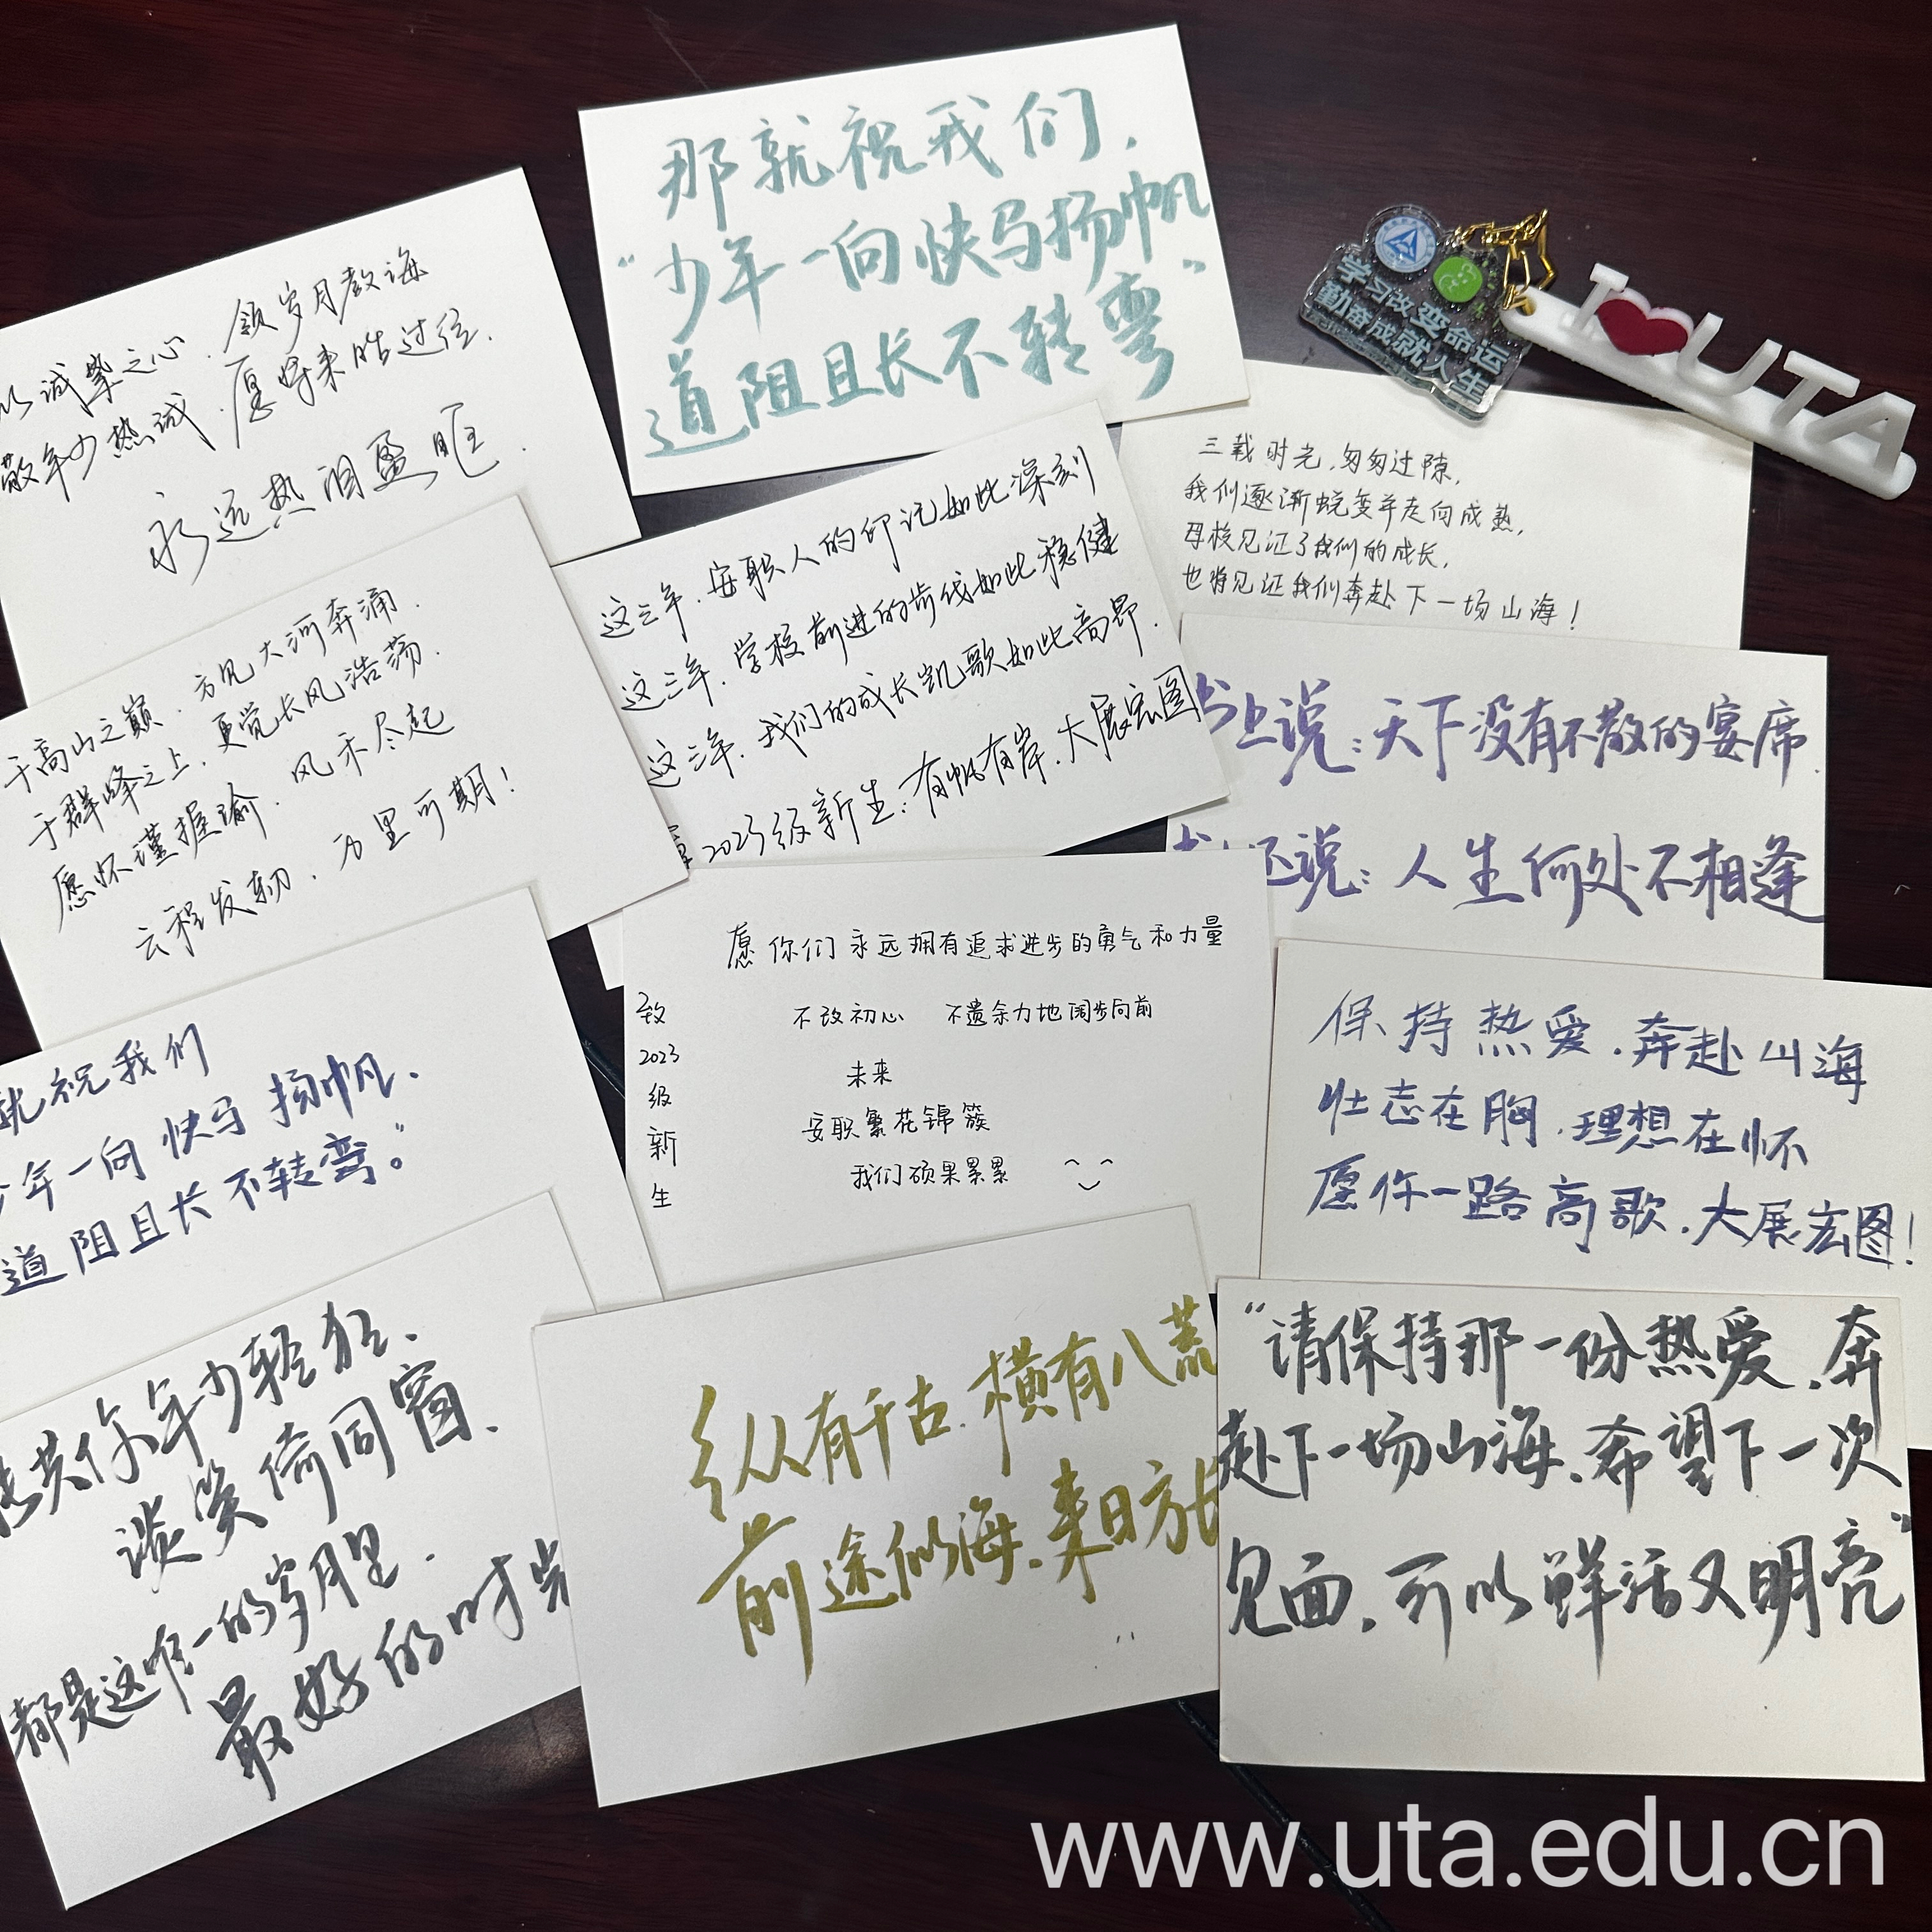 那就祝我们,
“少年一向快马扬帆
道阻且长不转弯”
学习改变命运
勤奋成就人生
I UTA
以诚挚之心.领岁月教诲
敬年少热诚.愿将来胜过往.
永远热泪盈眶.
三载时光,匆匆过隙,
我们逐渐蜕变并走向成熟,
母校见证了我们的成长,
也将见证我们奔赴下一场山海!
这三年.安职人的印记如此深刻
这三年.学校前进的步伐如此稳健
这三年.我们的成长凯歌如此高昂.
2023级新生:有帆有岸.大展宏图
于高山之巅.方见大河奔涌.
于群峰之上.更觉长风浩荡.
愿怀瑾握瑜.风禾尽起
云程发轫.万里可期!
书上说:天下没有不散的宴席.
还说:人生何处不相逢
愿你们永远拥有追求进步的勇气和力量
不改初心 不遗余力地阔步向前
未来
安职繁花锦簇
我们硕果累累
致
2023
级
新
生
保持热爱.奔赴山海
壮志在胸.理想在怀
愿你一路高歌.大展宏图!
就祝我们
少年一向快马扬帆.
道阻且长不转弯。”
共你年少轻狂.
谈笑倚同窗.
都是这唯一的岁月里.
最好的时光
纵有千古.横有八荒
前途似海.来日方长
“请保持那一份热爱.奔
赴下一场山海.希望下一次
见面,可以鲜活又明亮”
www.uta.edu.cn